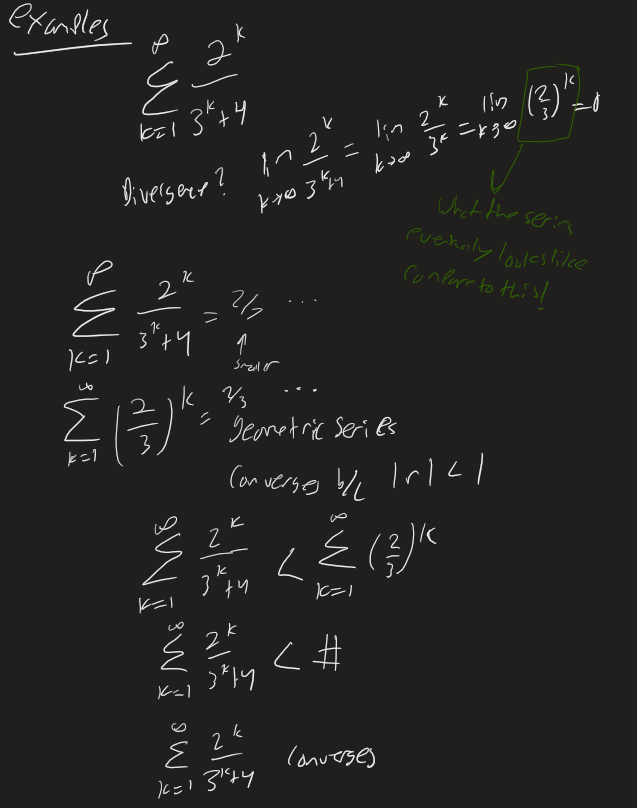 Examples
∞ Σ k=1 2^k / 3^k+4
Divergence? lim k→∞ 2^k / 3^k+4 = lim k→∞ 2^k / 3^k = lim k→∞ (2/3)^k = 0
What the series
eventually looks like
compare to this!
∞ Σ k=1 2^k / 3^k+4 = 2/7 ...
↑
smaller
∞ Σ k=1 (2/3)^k = 2/3 ...
Geometric series
Converges b/c |r| < 1
∞ Σ k=1 2^k / 3^k+4 < ∞ Σ k=1 (2/3)^k
∞ Σ k=1 2^k / 3^k+4 < #
∞ Σ k=1 2^k / 3^k+4 converges